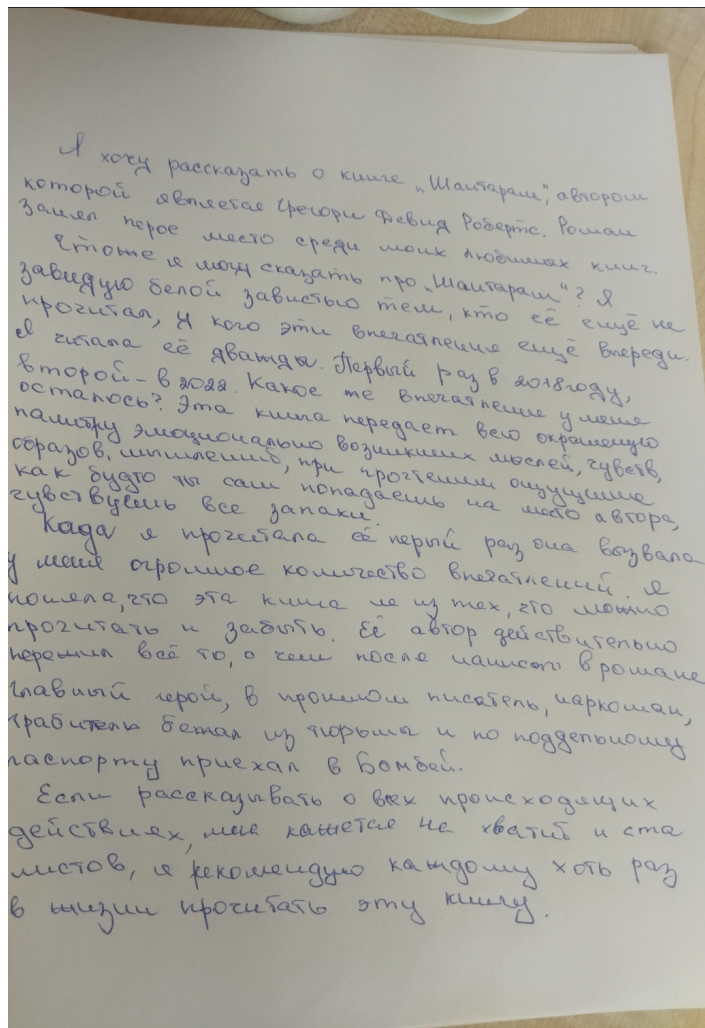 Я хочу рассказать о книге „Шантарам“, автором
которой является Грегори Девид Робертс. Роман
занял перое место среди моих любимых книг.
Чтоже я могу сказать про „Шантарам“? Я
завидую белой завистью тем, кто её ещё не
прочитал, у кого эти впечатления ещё впереди.
Я читала её дважды. Первый раз в 2018 году,
второй – в 2022. Какое же впечатление у меня
осталось? Эта книга передает всю окрашеную
палитру эмоционально возникших мыслей, чувств,
образов, мышлений, при прочтении ощущение
как будто ты сам попадаешь на место автора,
чувствуешь все запахи.
Када я прочитала её перый раз она вызвала
у меня огромное количество впечатлений. Я
поняла, что эта книга не из тех, что можно
прочитать и забыть. Её автор действительно
пережил всё то, о чем после написал в романе
Главный герой, в прошлом писатель, наркоман,
грабитель бежал из тюрьмы и по поддельному
паспорту приехал в Бомбей.
Если рассказывать о всех происходящих
действиях, мне кажется не хватит и ста
листов, я рекомендую каждому хоть раз
в жизни прочитать эту книгу.